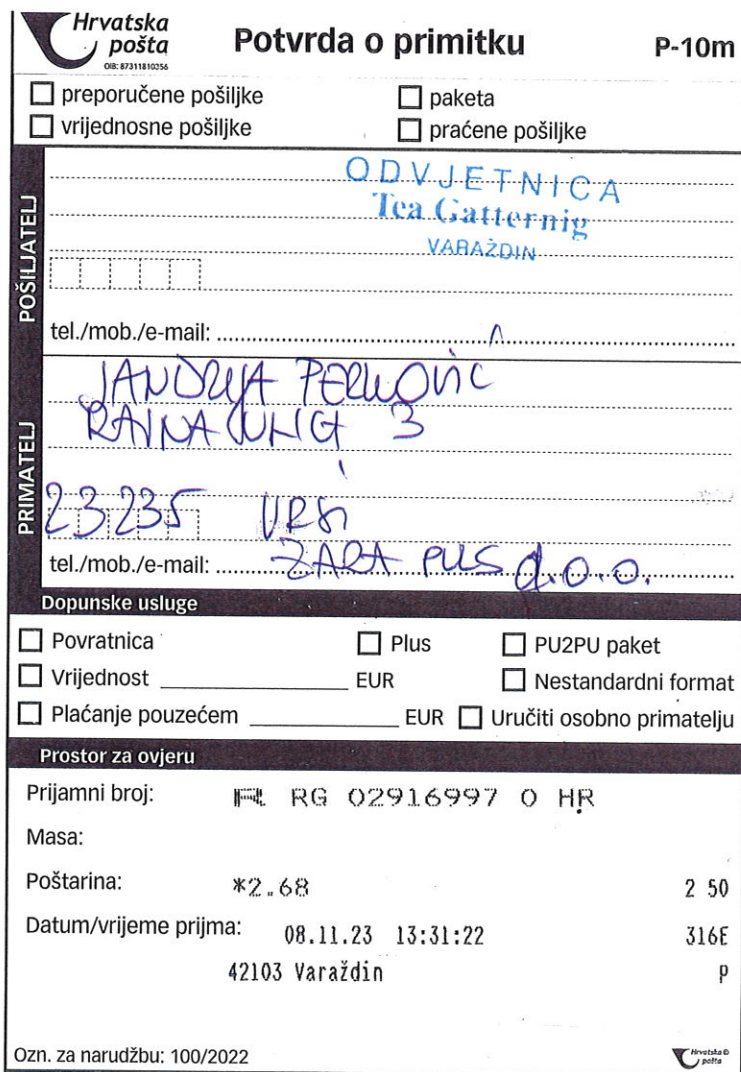 Hrvatska pošta
OIB: 87311810356
Potvrda o primitku
P-10m
preporučene pošiljke
paketa
vrijednosne pošiljke
praćene pošiljke
POŠILJATELJ
ODVJETNICA
Tea Gatternig
VARAŽDIN
tel./mob./e-mail:
PRIMATELJ
PERKOVIĆ
3
23235 VRSI
tel./mob./e-mail: ZARA PLUS d.o.o.
Dopunske usluge
Povratnica
Plus
PU2PU paket
Vrijednost EUR
Nestandardni format
Plaćanje pouzećem EUR
Uručiti osobno primatelju
Prostor za ovjeru
Prijamni broj: R RG 02916997 0 HR
Masa:
Poštarina: *2.68 2 50
Datum/vrijeme prijma: 08.11.23 13:31:22 316E
42103 Varaždin P
Ozn. za narudžbu: 100/2022
Hrvatska pošta